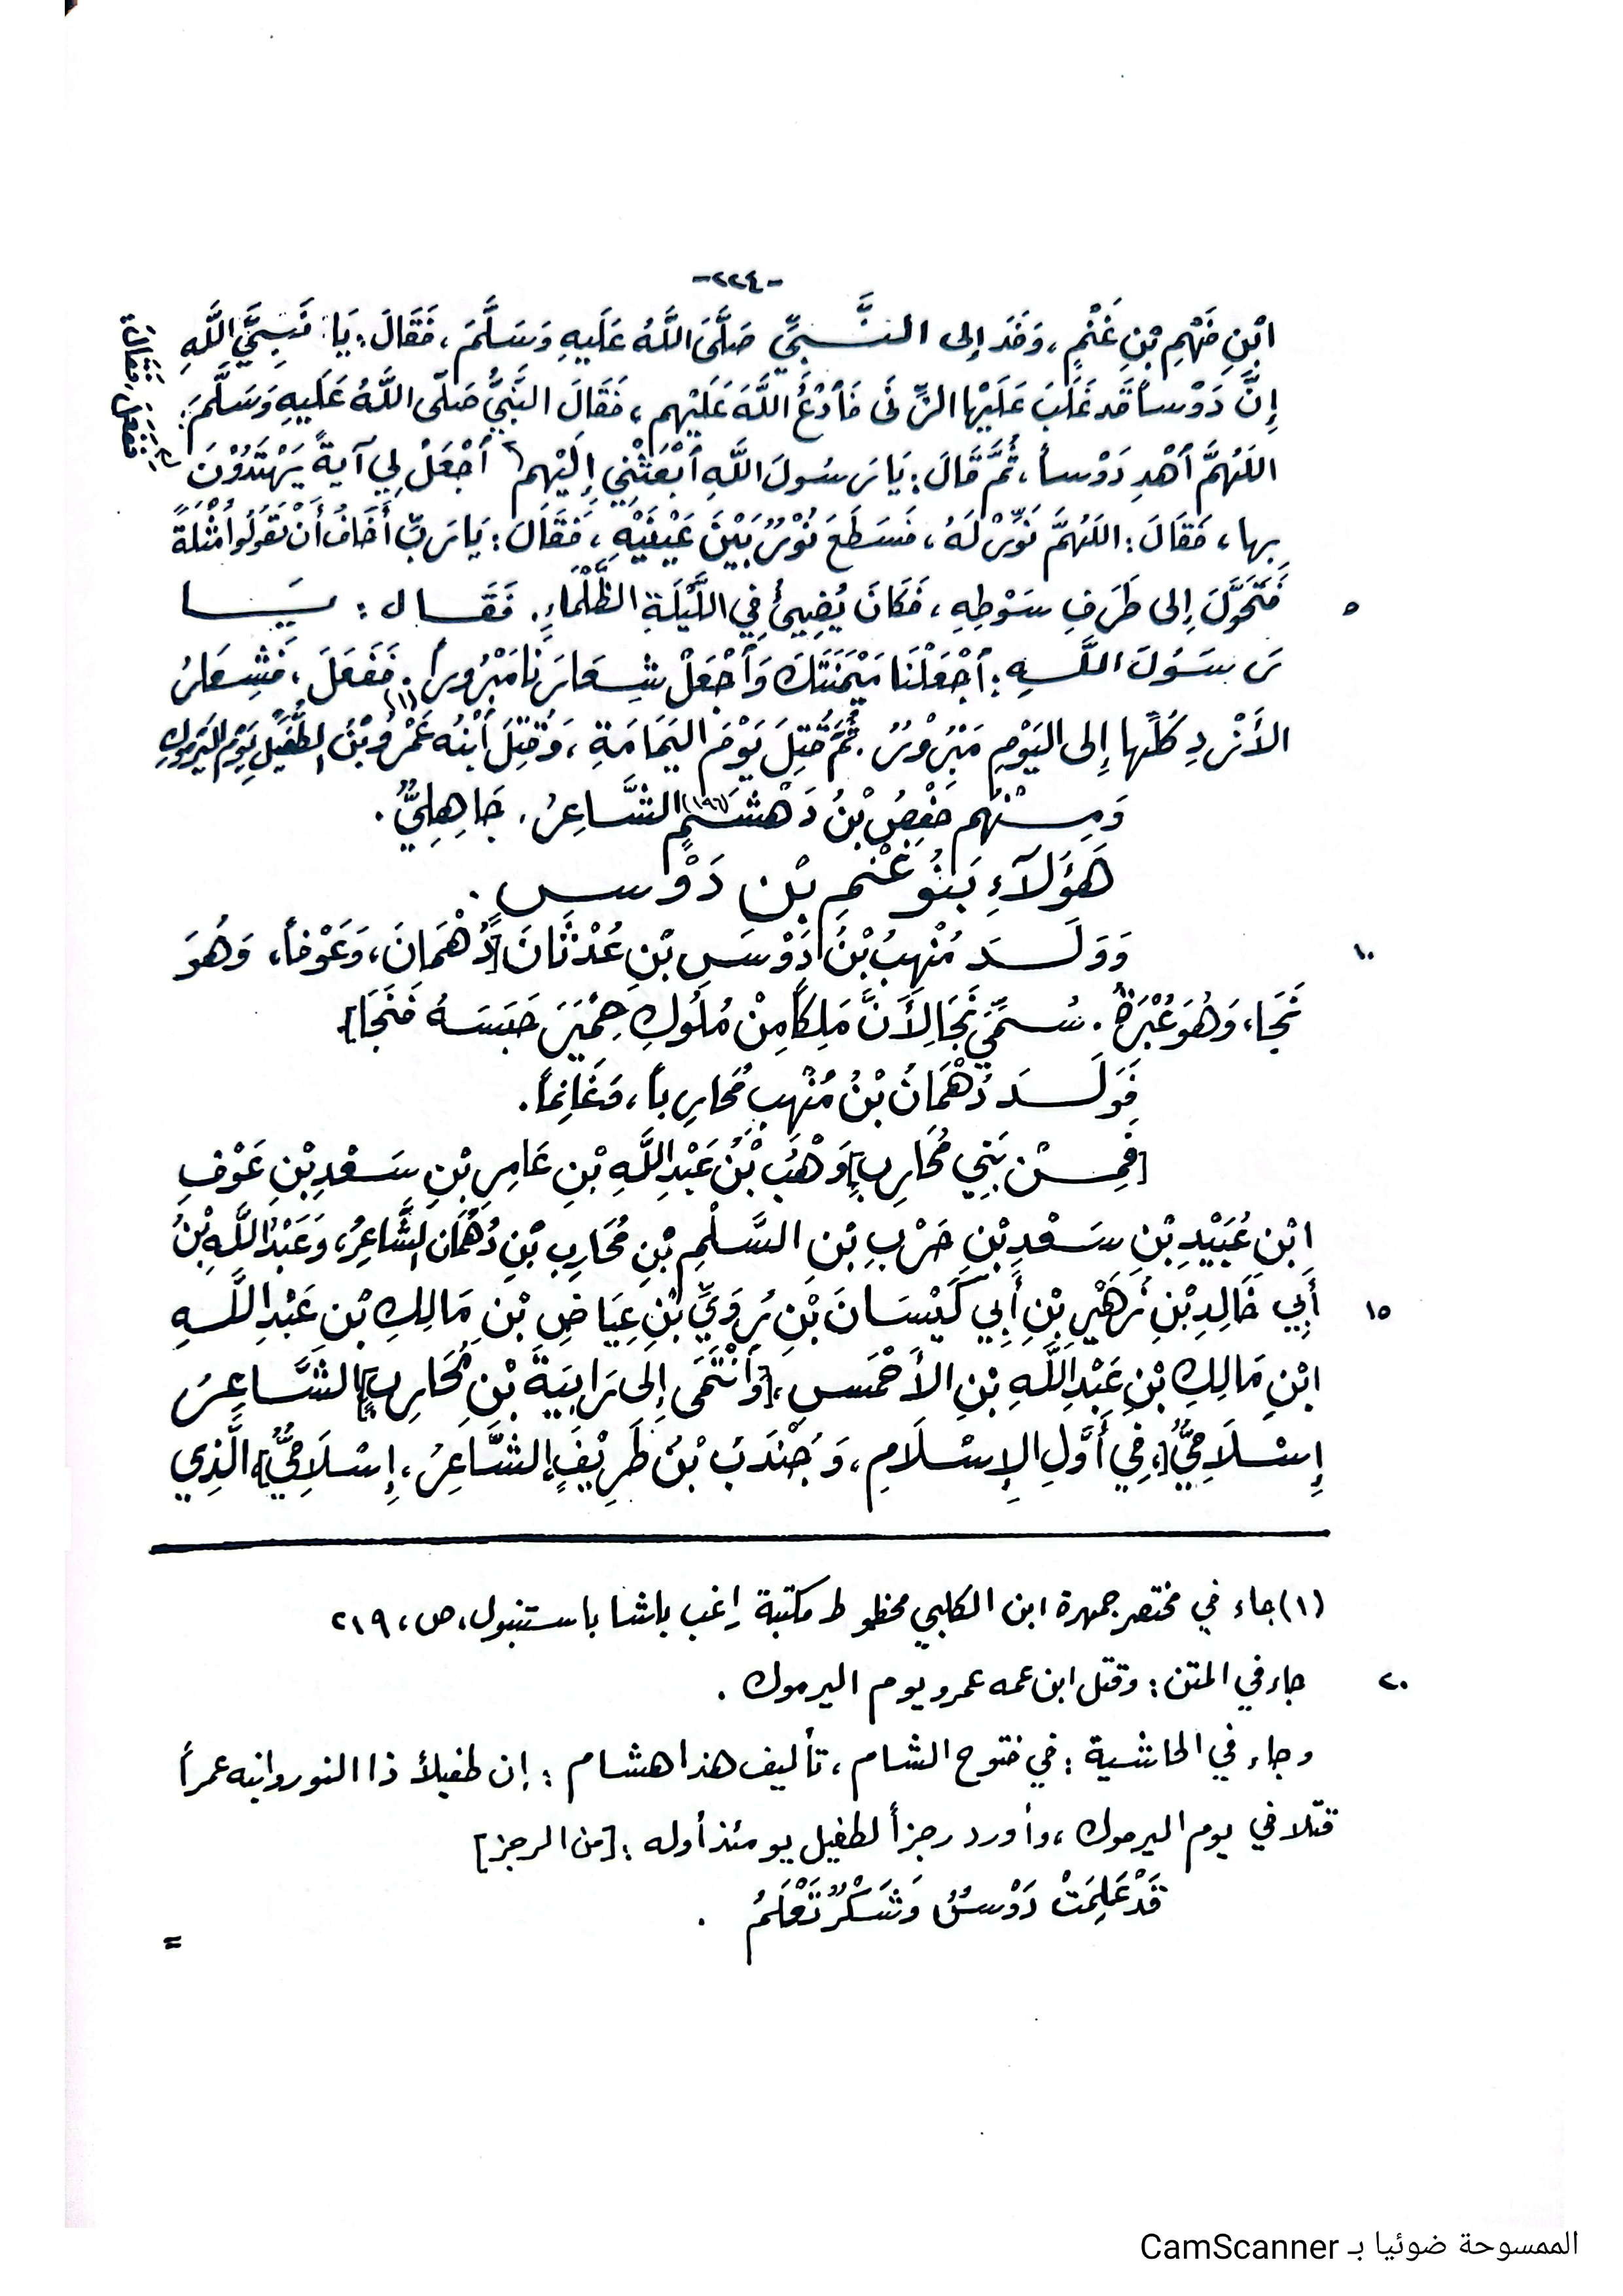 -٢٢٤-
ابْنِ فَهْمِ بْنِ غَنْمٍ، وَفَدَ إلى النَّبِيِّ صَلَّى اللَّهُ عَلَيهِ وَسَلَّمَ، فَقَالَ: يَا نَبِيَّ اللَّهِ
إِنَّ دَوْساً قَد غَلَبَ عَلَيْها الزِّنَى فَٱدْعُ اللَّهَ عَلَيْهم، فَقَالَ النَّبيُّ صَلّى اللَّهُ عَلَيهِ وَسَلَّمَ:
اللَهُمَّ ٱهْدِ دَوْساً، ثُمَّ قَالَ: يَا رَسُولَ اللَّهِ ٱبْعَثْنِي إِلَيْهِم ٱجْعَلْ لِي آيةً يَهْتَدُوْنَ
فَفَعَلَ، فَقَالَ:
بِها، فَقَالَ: اللَهُمَّ نَوِّرْ لَهُ، فَسَطَعَ نُوْرٌ بَيْنَ عَيْنَيْهِ، فَقَالَ: يَا رَبِّ أَخَافُ أَنْ تَقُولُوا مُثْلَةً
٥ فَتَحَوَّلَ إِلى طَرَفِ سَوْطِهِ، فَكَانَ يُضِيئُ فِي اللَّيْلَةِ الظَّلْمَاءِ. فَقَال: يَا
رَسُوَلَ اللَّهِ: ٱجْعَلْنَا مَيْمَنَتَكَ وَٱجْعَلْ شِعَارَنا مَبْرُوراً. فَفَعَلَ، فَشِعَارُ
الأَزْدِ كُلِّها إِلى اليَوْمِ مَبْرُوْرٌ. ثُمَّ قُتِلَ يَوْمَ اليَمَامَةِ، وَقُتِلَ ٱبْنُه عَمْرُو بْنُ الطُّفَيْلِ يَوْمَ اليَرْمُوكِ (١)
وَمِنْهُم حَفْصُ بْنُ دَهْشَمٍ (١٩٦) الشَّاعِرُ، جَاهِلِيٌّ.
هَؤلَآءِ بَنُو غَنْمِ بْنِ دَوْسٍ.
١٠ وَوَلَدَ مُنْهِبُ بْنُ دَوْسِ بْنِ عُدْثَانَ [دُهْمَانَ، وَعَوْفاً، وَهُوَ
نَجَا، وَهُوَ عُبْرَةُ. سُمِّيَ نَجَا لِأَنَّ مَلِكاً مِنْ مُلُوكِ حِمْيَرَ حَبَسَهُ فَنَجَا]
فَوَلَدَ دُهْمَانُ بْنُ مُنْهِبٍ مُحَارِباً، وَغَانِماً.
[فَمِنْ بَنِي مُحَارِبٍ] وَهْبُ بْنُ عَبْدِ اللَّهِ بْنِ عَامِرِ بْنِ سَعْدِ بْنِ عَوْفِ
ابْنِ عُبَيْدِ بْنِ سَعْدِ بْنِ حَرْبِ بْنِ السَّلْمِ بْنِ مُحَارِبِ بْنِ دُهْمَانَ الشَّاعِرُ، وَعَبْدُ اللَّهِ بْنُ
١٥ أَبِي خَالِدِ بْنِ زُهَيْرِ بْنِ أَبِي كَيْسَانَ بْنِ رُوَيِّ بْنِ عِيَاضِ بْنِ مَالِكِ بْنِ عَبْدِ اللَّهِ
ابْنِ مَالِكِ بْنِ عَبْدِ اللَّهِ بْنِ الأَحْمَسِ، [وَٱنْتَمَى إِلى رَابِيَةَ بْنِ مُحَارِبٍ] الشَّاعِرُ
إِسْلَامِيٌّ [، فِي أَوَّلِ الإِسْلَامِ، وَجُنْدَبُ بْنُ طَرِيْفٍ الشَّاعِرُ، إِسْلَامِيٌّ] الَّذِي
(١) جاء في مختصر جمهرة ابن الكلبي مخطوط مكتبة راغب باشا باستنبول، ص، ٢١٩
٢٠ جاء في المتن: وقتل ابن عمه عمرو يوم اليرموك.
وجاء في الحاشية: في فتوح الشام، تأليف هذا هشام: إن طفيلاً ذا النور وابنه عمراً
قتلا في يوم اليرموك، وأورد رجزاً لطفيل يومئذ أوله: [من الرجز]
قَدْ عَلِمَتْ دَوْسٌ وَشَكْرٌ تَعْلَمُ.
=
الممسوحة ضوئيا بـ CamScanner